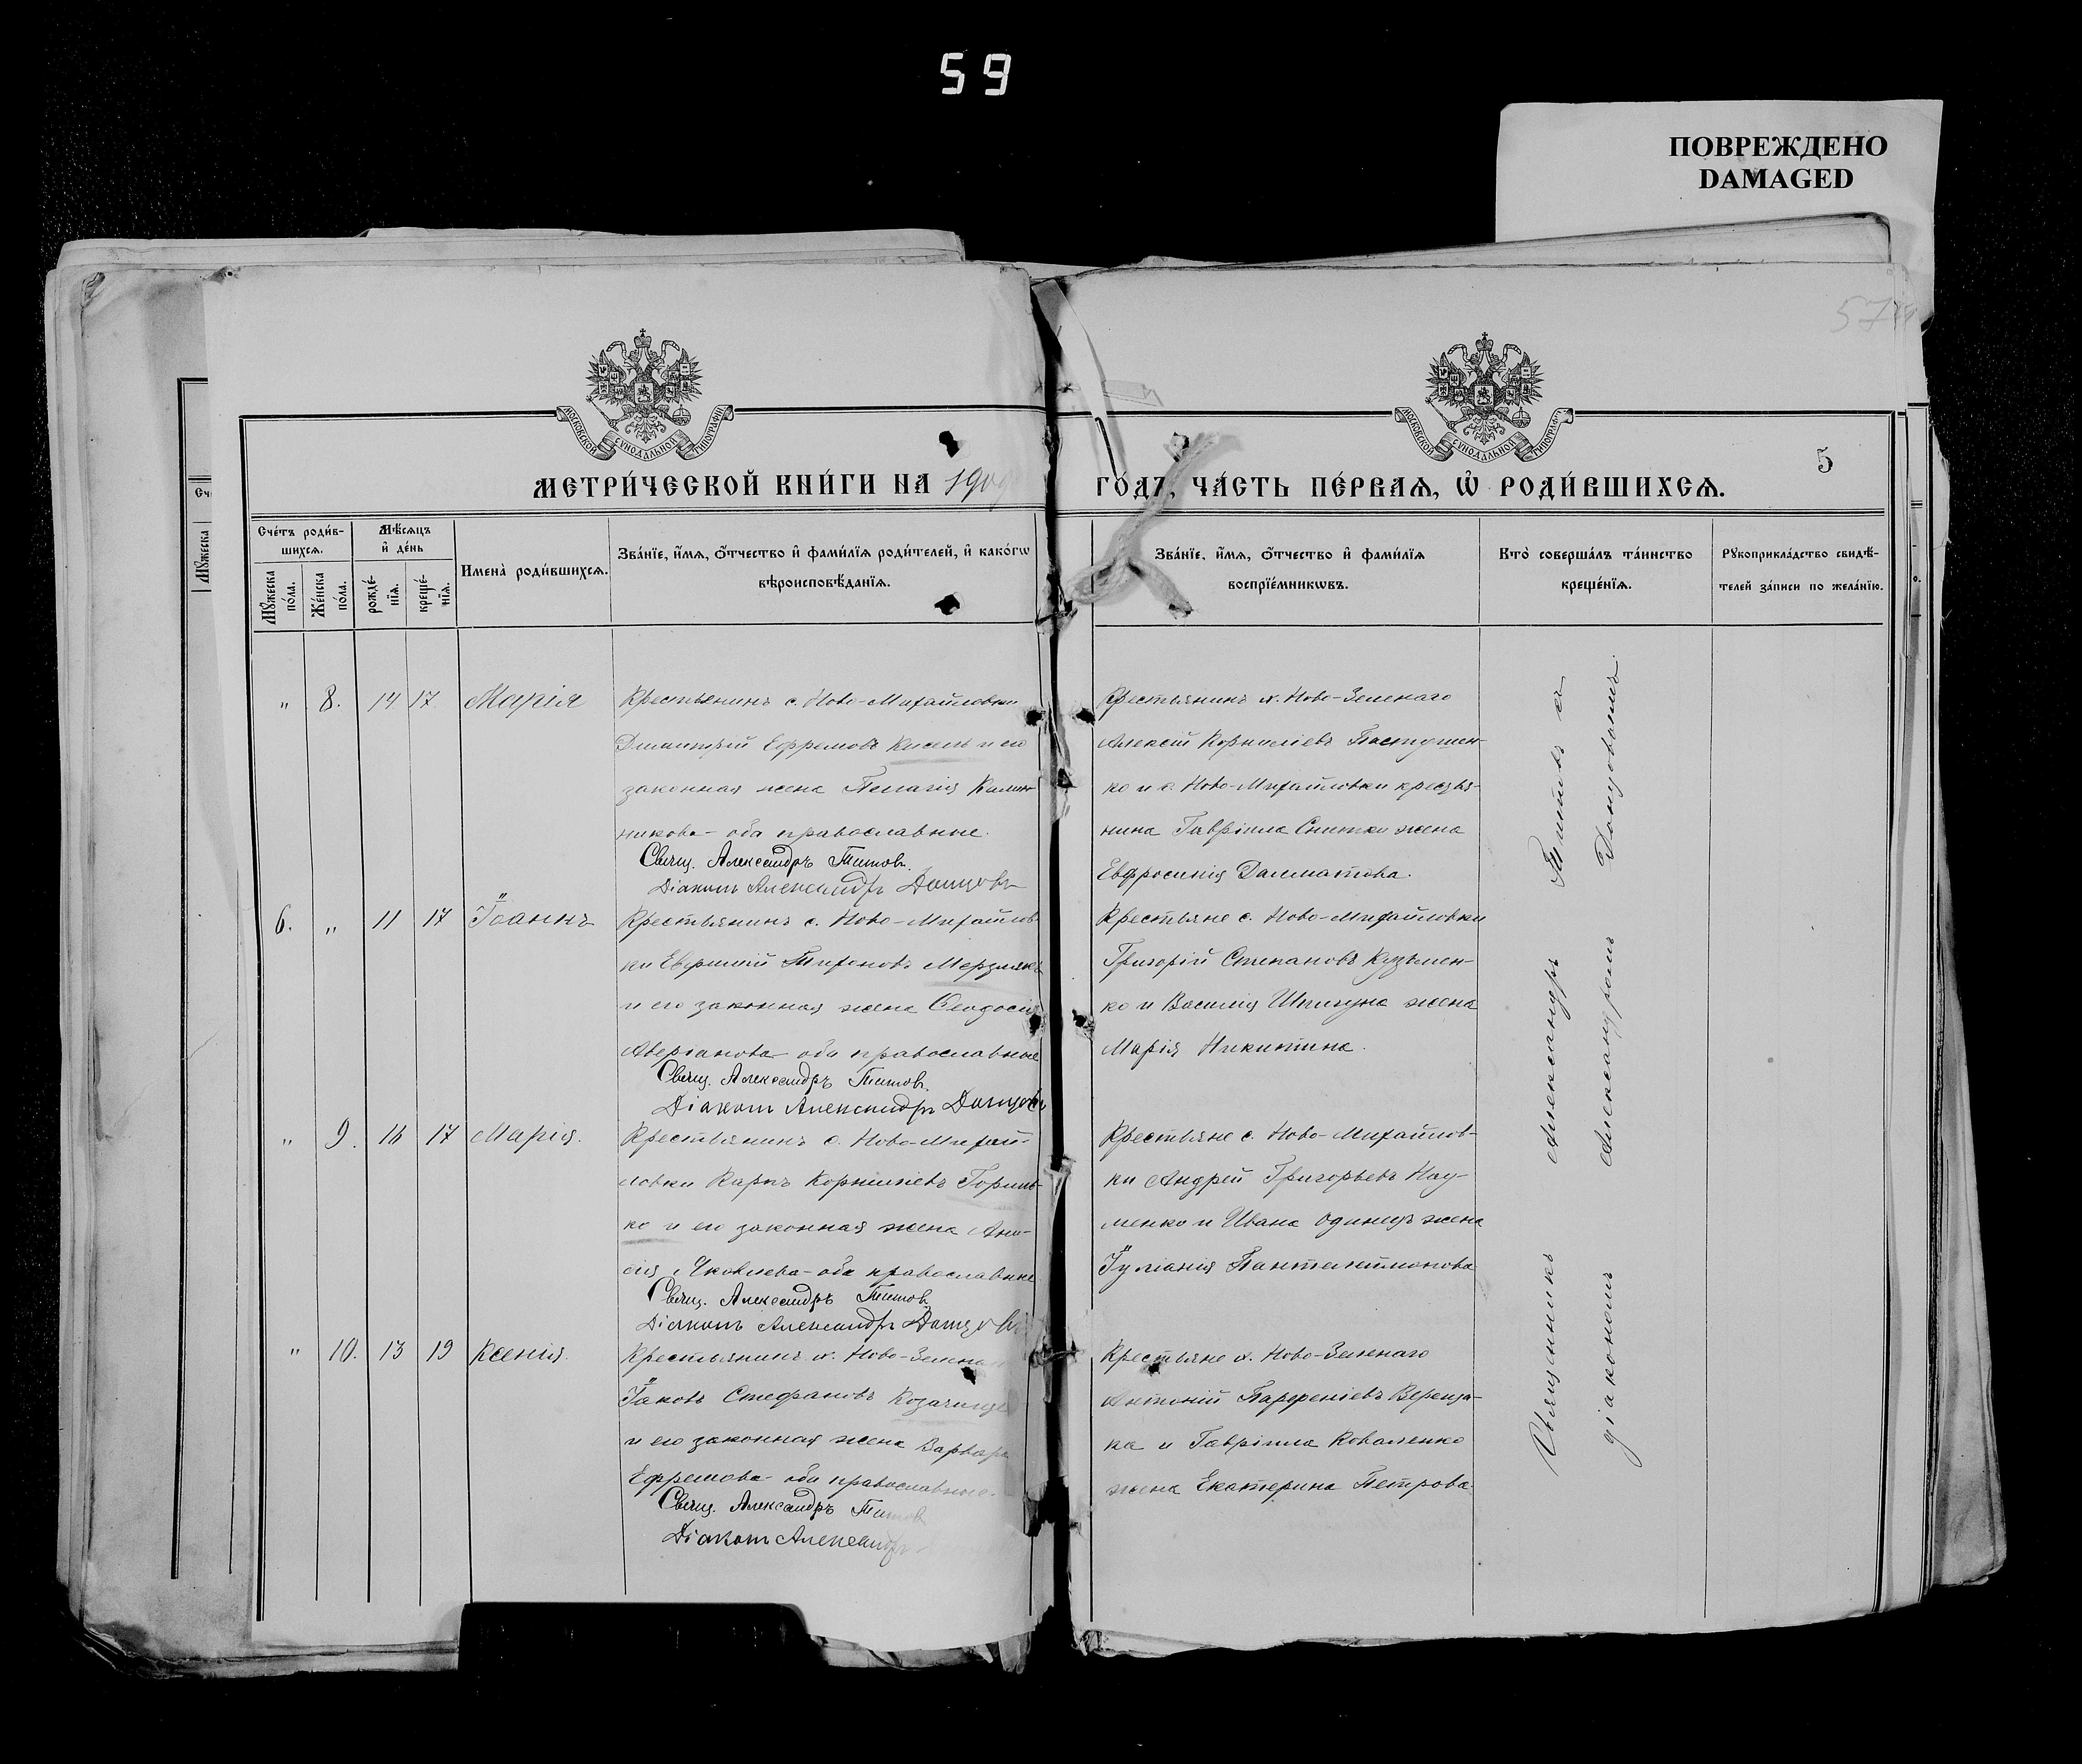 59
ПОВРЕЖДЕНО
DAMAGED
57
5
МОСКОВСКОЙ СУНОДАЛЬНОЙ ТИПОГРАФІИ
МОСКОВСКОЙ СУНОДАЛЬНОЙ ТИПОГРАФІИ
МЕТРИ́ЧЕСКОЙ КНИ́ГИ НА 1909
ГО́ДЪ, ЧА́СТЬ ПЕ́РВАЯ, Ѡ҆ РОДИ́ВШИХСЯ.
Сче́тъ роди́в-
шихся.
Мѣ́сяцъ
и҆ де́нь
Мꙋ́жеска
по́ла.
Же́нска
по́ла.
рожде́-
нїя.
креще́-
нїя.
Имена̀ роди́вшихся.
Зва́нїе, и҆́мя, ѻ҆́тчество и҆ фами́лїя роди́телей, и҆ како́гѡ
вѣроисповѣ́данїя.
Зва́нїе, и҆́мя, ѻ҆́тчество и҆ фами́лїя
воспрїе́мникѡвъ.
Кто̀ соверша́лъ та́инство
креще́нїя.
Рꙋкоприкла́дство свидѣ́-
телей за́писи по жела́нїю.
" 8. 14 17 Марія
Крестьянинъ с. Ново-Михайловки
Димитрій Ефремовъ Кисель и его
законная жена Пелагія Калин-
никова - оба православные.
Свящ. Александръ Титов.
Діаконъ Александръ Донцовъ
Крестьянинъ х. Ново-Зеленаго
Алексій Корниліевъ Пастушен-
ко и с. Ново-Михайловки крестья-
нина Гавріила Снитки жена
Евфросинія Далматова.
6. " 11 17 Іоаннъ
Крестьянинъ с. Ново-Михайлов-
ки Евфимій Тихоновъ Мерзляк
и его законная жена Ѳеодосія
Аверіанова - оба православные
Свящ. Александръ Титов.
Діаконъ Александръ Донцовъ
Крестьяне с. Ново-Михайловки
Григорій Степановъ Кузьмен-
ко и Василія Шпигуна жена
Марія Никитина.
" 9. 16 17 Марія.
Крестьянинъ с. Ново-Михай
ловки Карпъ Корниліевъ Горинь-
ко и его законная жена Ани-
сія Яковлева - оба православные
Свящ. Александръ Титов
Діаконъ Александръ Донцовъ
Крестьяне с. Ново-Михайлов-
ки Андрей Григорьевъ Нау-
менко и Ивана Одинца жена
Іуліанія Пантелеимонова
" 10. 13 19 Ксенія.
Крестьянинъ х. Ново-Зелена
Іаковъ Стефановъ Козачище
и его законная жена Варвара
Ефремова - оба православные.
Свящ. Александръ Титов
Діаконъ Александръ
Крестьяне х. Ново-Зеленаго
Антоній Парфеніевъ Вереща-
ка и Гавріила Коваленко
жена Екатерина Петрова.
Священникъ Александръ Титовъ съ
діакономъ Александромъ Донцовымъ.